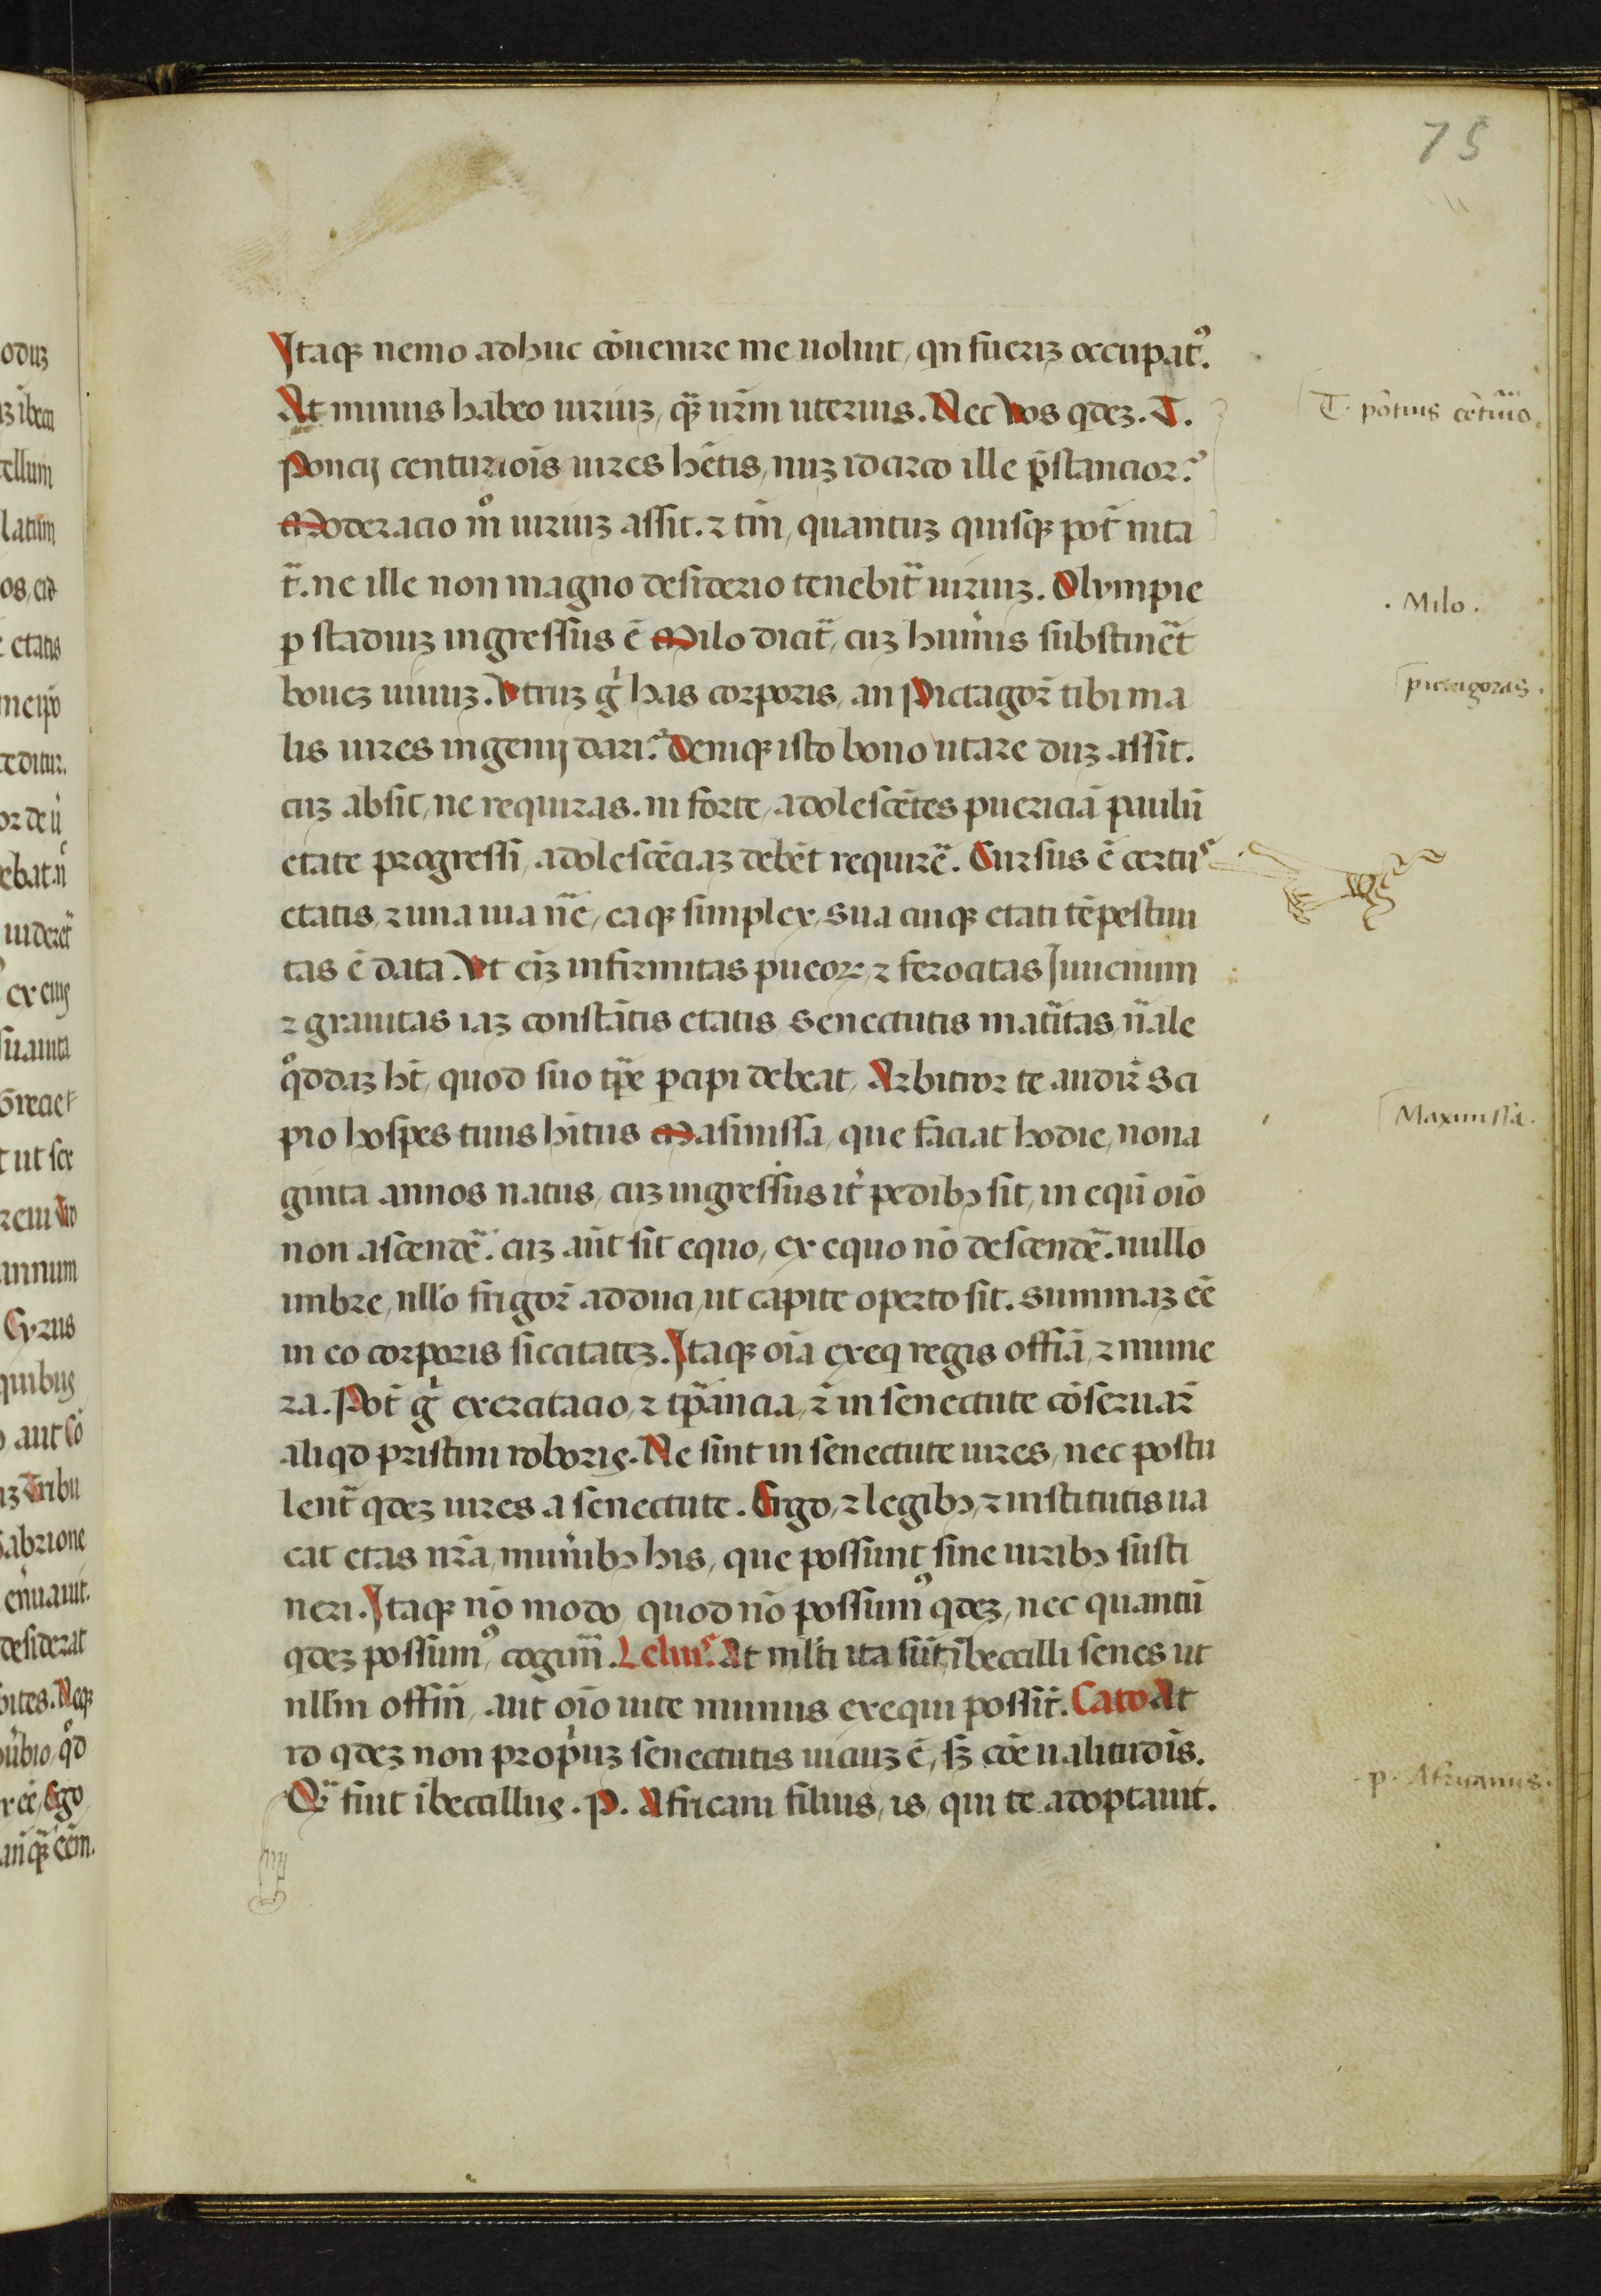 75
Itaqȝ nemo adhuc cōuenire me uoluit, qn fueriȝ occupat᾽.
At minus habeo uiriuȝ, qȝ̄ ur̄m uteruis. Nec Vos qdeȝ. T.
Poncij centuriois uires hētis, nuȝ idcirco ille p̄stancior?
Moderacio mͦ uiriuȝ assit. ⁊ tm̄, quantuȝ quisqȝ pot̄ nita
t̄. ne ille non magno desiderio tenebit̄ uiriuȝ. Olympie
p stadiuȝ ingressus ē Milo dicit̄, cuȝ hum̄is substinēt
boueȝ uiuuȝ. Vtruȝ gͥ has corporis, an Pictagor̄ tibi ma
lis uires ingenij dari? Deniqȝ isto bono utare duȝ assit.
cuȝ absit, ne requiras. ni forte, adolescētes puericiā paulū
etate progressi, adolescēciaȝ debēt requirē. Cursus ē certu᾽
etatis, ⁊ una uia nc̄, eaqȝ simplex, sua cuiqȝ etati tēpestiui
tas ē data. Vt eiȝ infirmitas pueoꝝ, ⁊ ferocitas Iuuenum
⁊ grauitas iaȝ constātis etatis, senectutis mat̄itas, n̄ale
qͦddaȝ ht̄, quod suo tp̄e ꝑcipi debeat, Arbitror te audir̄ Sci
pio hospes tuus hitus Masinissa, que faciat hodie, nona
ginta annos natus, cuȝ ingressus it᾽ pedibȝ sit, in equū oīo
non ascendē. cuȝ aūt sit equo, ex equo nō descendē. nullo
imbre, nllo frigor̄ adduci, ut capite operto sit. summaȝ eē
in eo corporis siccitateȝ. Itaqȝ oīa exeq regis offīa, ⁊ mune
ra. Pot̄ gͥ exercitacio, ⁊ tp̄ancia, ⁊̄ in senectute cōseruar̄
aliqd pristini roboris. Ne sint in senectute uires, nec postu
lent̄ qdeȝ uires a senectute. Ergo, ⁊ legibȝ, ⁊ institutis ua
cat etas nr̄a, mun̄ibȝ his, que possunt sine uiribȝ susti
neri. Itaqȝ nō modo, quod nō possum᾽ qdeȝ, nec quantū
qdeȝ possum᾽, cogim̄. Leliu᾽. At mlti ita sūt, ībecilli senes ut
nllm offīn, aut oīo uite munus exequi possīt. Cato At
id qdeȝ non propͥuȝ senectutis uiciuȝ ē, sȝ cōe ualitudīs.
Qͫ fuit ībecillus. P. Africani filius, is, qui te adoptauit.
T. pōtius cēt᾽io.
. Milo .
pictagoras .
Maximissa .
. p. Africanus .